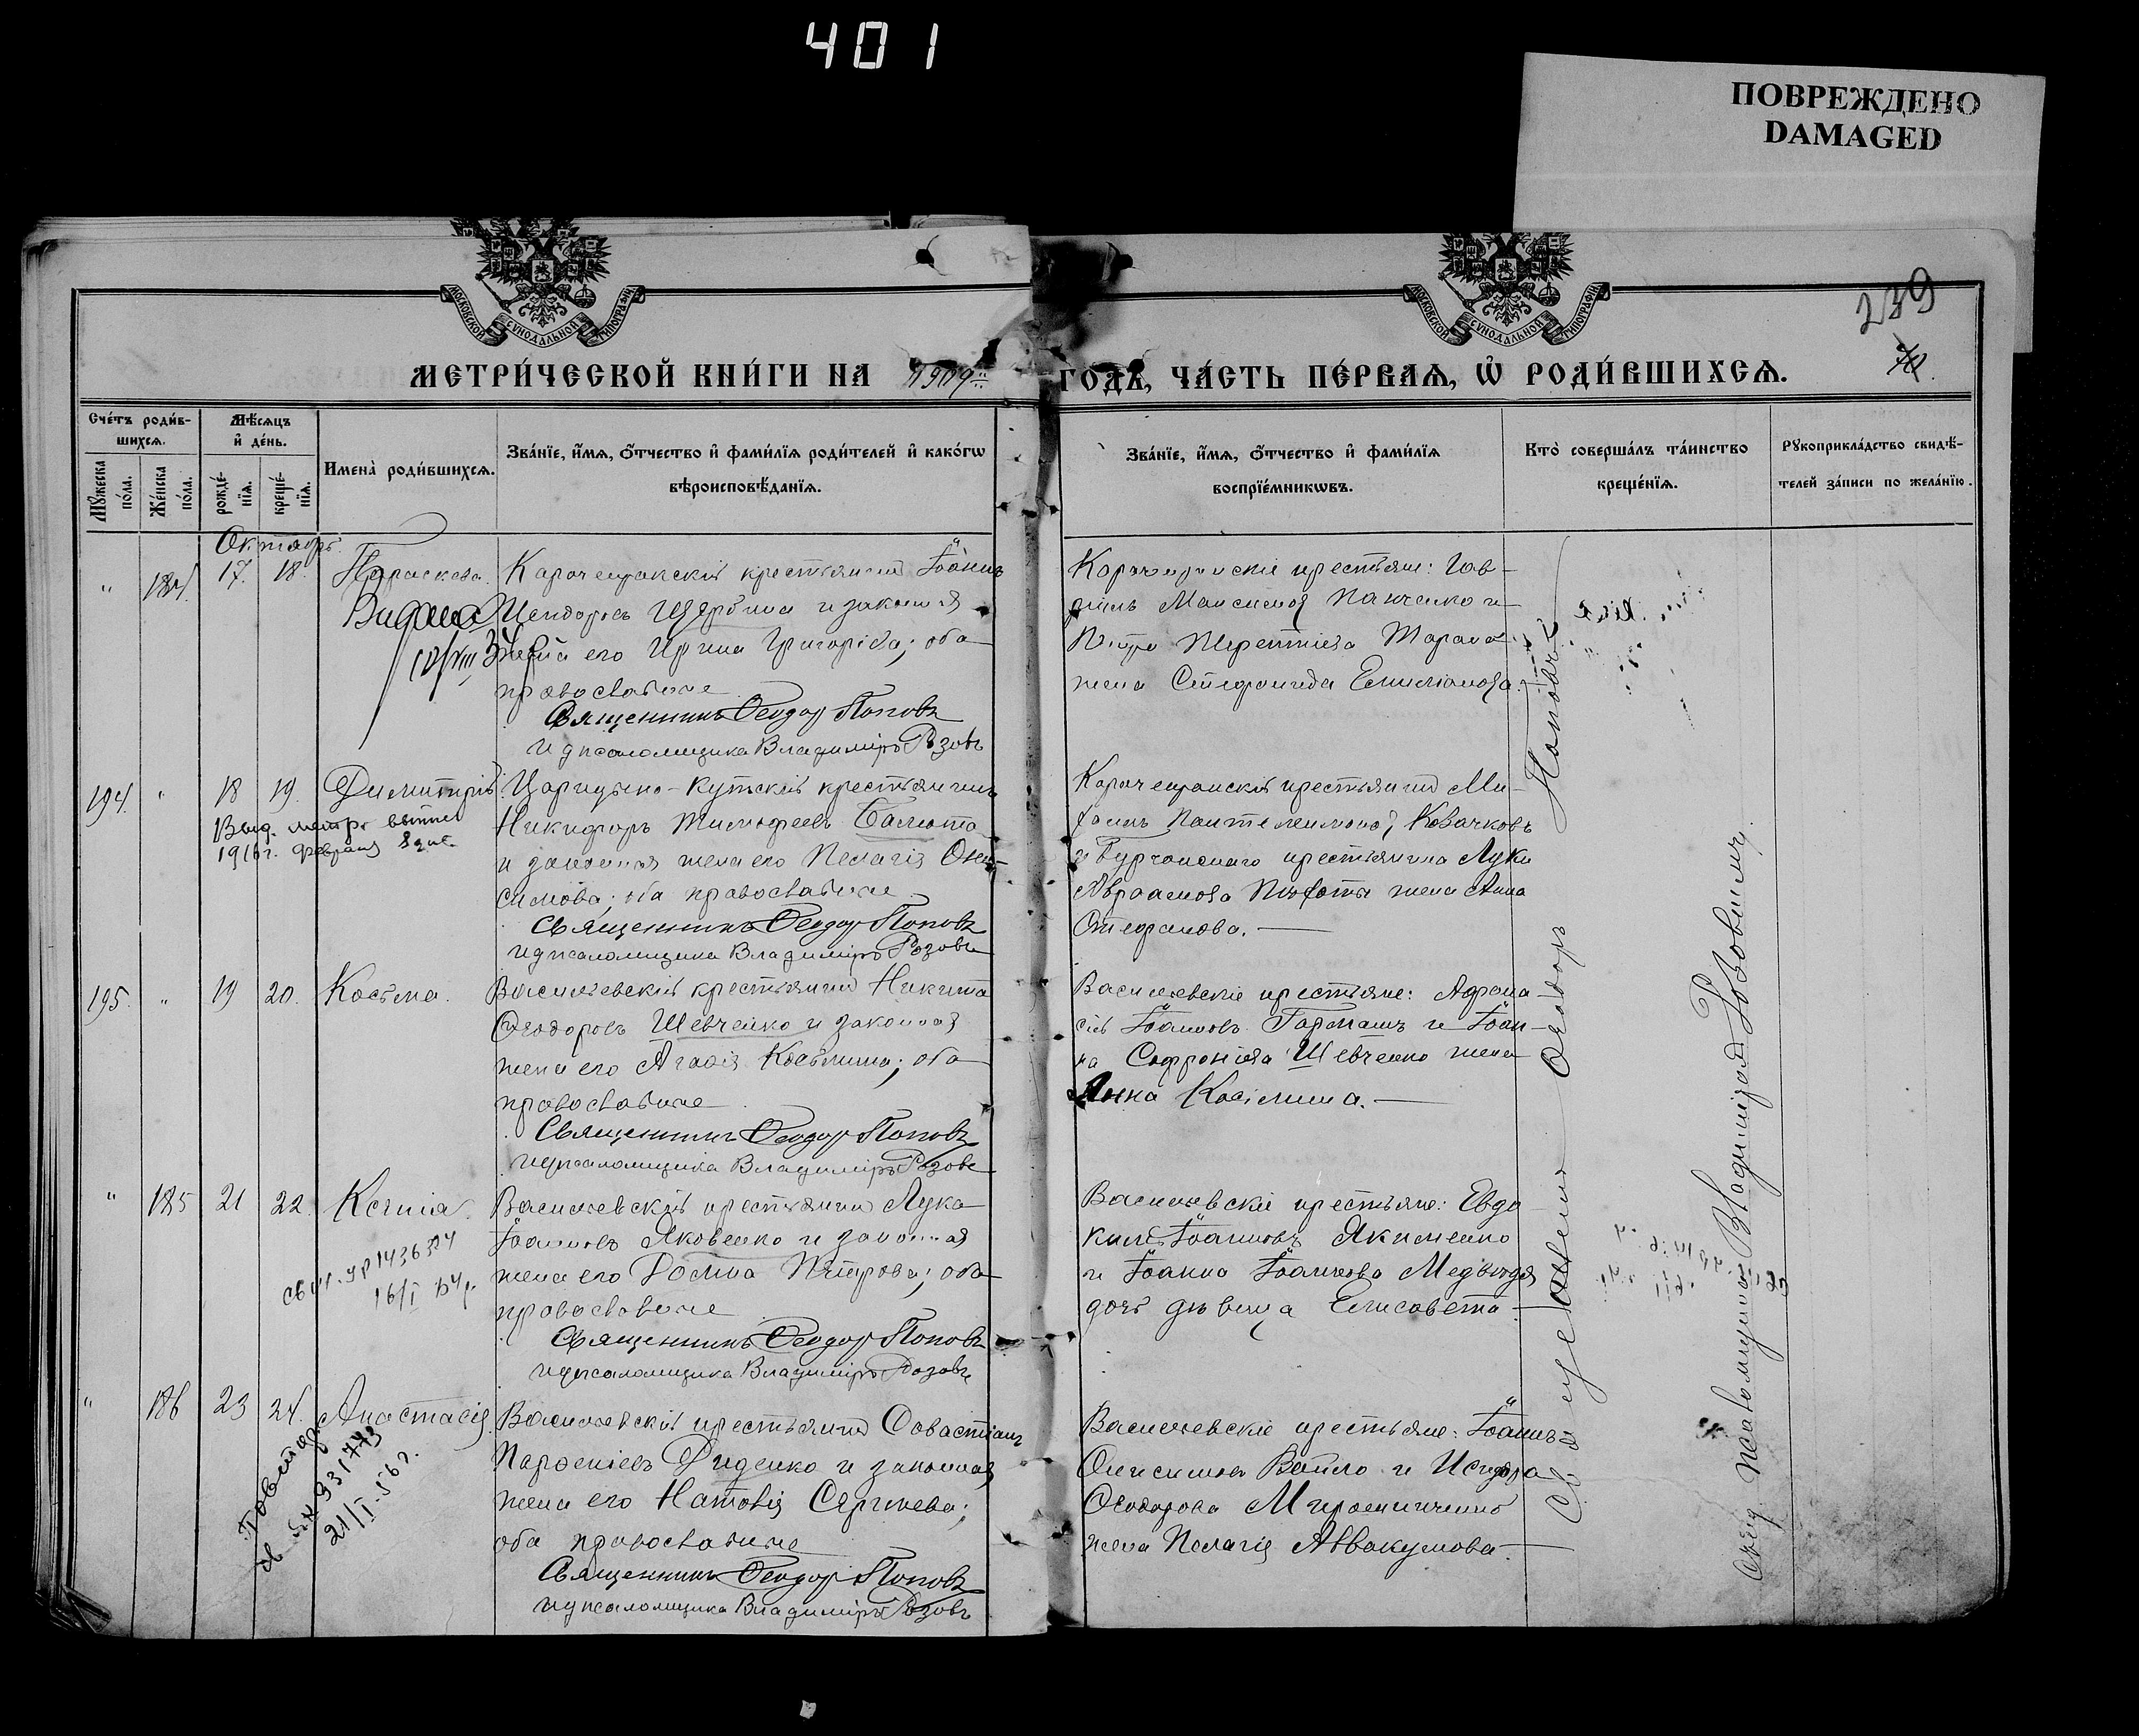 401
ПОВРЕЖДЕНО
DAMAGED
МОСКОВСКОЙ СУНОДАЛЬНОЙ ТИПОГРАФІИ
МОСКОВСКОЙ СУНОДАЛЬНОЙ ТИПОГРАФІИ
239
МЕТРИ́ЧЕСКОЙ КНИ́ГИ НА 1909 ГОДЪ, ЧА́СТЬ ПЕ́РВАѦ, Ѡ РОДИ́ВШИХСѦ.
Сче́тъ роди́в-
шихсѧ.
Мꙋжеска по́ла.
Же́нска по́ла.
Мѣ́сѧцъ
и҆ де́нь.
рожде́-
нїѧ.
креще́-
нїѧ.
Имена̀ роди́вшихсѧ.
Зва́нїе, и҆́мѧ, ѻ҆́тчество и҆ фами́лїѧ роди́телей и҆ како́гѡ
вѣроисповѣ́данїѧ.
Зва́нїе, и҆́мѧ, ѻ҆́тчество и҆ фами́лїѧ
воспрїе́мникѡвъ.
Кто̀ соверша́лъ та́инство
креще́нїѧ.
Рꙋкоприкла́дство свидѣ́-
телей за́писи по жела́нїю.
Октябрь.
" 184. 17. 18. Параскева.
Карачекракскій крестьянинъ Іоаннъ
Исидоровъ Щербина и законная
жена его Ирина Григоріева; оба
православные
Священникъ Ѳеодоръ Поповъ
И д псаломщика Владиміръ Розовъ
Карачекракскіе крестьяне: Гав-
ріилъ Панченко и
Петра Терентіева Тарана
жена Стефанида Емиліанова.
194. " 18 19. Димитрій
Выд. метр. выпись
1916 г. Февраля 8 дня.
Царицыно-Кутскій крестьянинъ
Никифоръ Тимофеевъ Балюта
и законная жена его Пелагія Они-
симова; оба православные
Священникъ Ѳеодоръ Поповъ
И д псаломщика Владиміръ Розовъ
Карачекракскій крестьянинъ Ми-
хаилъ Пантелеимоновъ Ковачковъ
и Бурчакскаго крестьянина Луки
Авраамова жена Анна
Стефанова.
195. " 19 20. Косьма.
Васильевскій крестьянинъ Никита
Ѳеодоровъ Шевченко и законная
жена его Агафія Косьмина; оба
православные
Священникъ Ѳеодоръ Поповъ
И д псаломщика Владиміръ Розовъ
Васильевскіе крестьяне: Афана-
сій Іоанновъ и Іоан-
на Софроніева Шевченко жена
Анна Косьмина.
" 185 21 22. Ксенія.
16/I
Васильевскій крестьянинъ Лука
Іоанновъ Яковенко и законная
жена его Домна Петрова; оба
православные
Священникъ Ѳеодоръ Поповъ
И д псаломщика Владиміръ Розовъ
Васильевскіе крестьяне: Евдо-
кимъ Іоанновъ Якименко
и Іоанна Іоаннова Медвѣдя
дочь дѣвица Елисавета
" 186 23 24. Анастасія.
21/I-56 г.
Васильевскій крестьянинъ Савастіанъ
Парѳеніевъ Диденко и законная
жена его Наталія Сергіева;
оба православные
Священникъ Ѳеодоръ Поповъ
И д псаломщика Владиміръ Розовъ
Васильевскіе крестьяне: Іоаннъ
Онисимовъ Вайло и Исидора
Ѳеодорова Мирошниченко
жена Пелагія Аввакумова.
Священникъ Ѳеодоръ Поповъ
съ и д псаломщика Владиміромъ Розовымъ